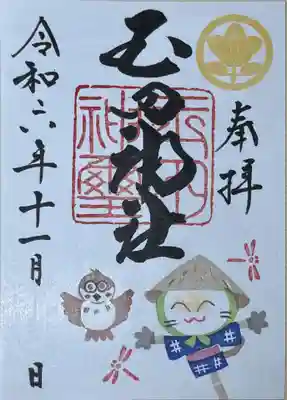 奉拝
玉田神社
令和六年十一月 日